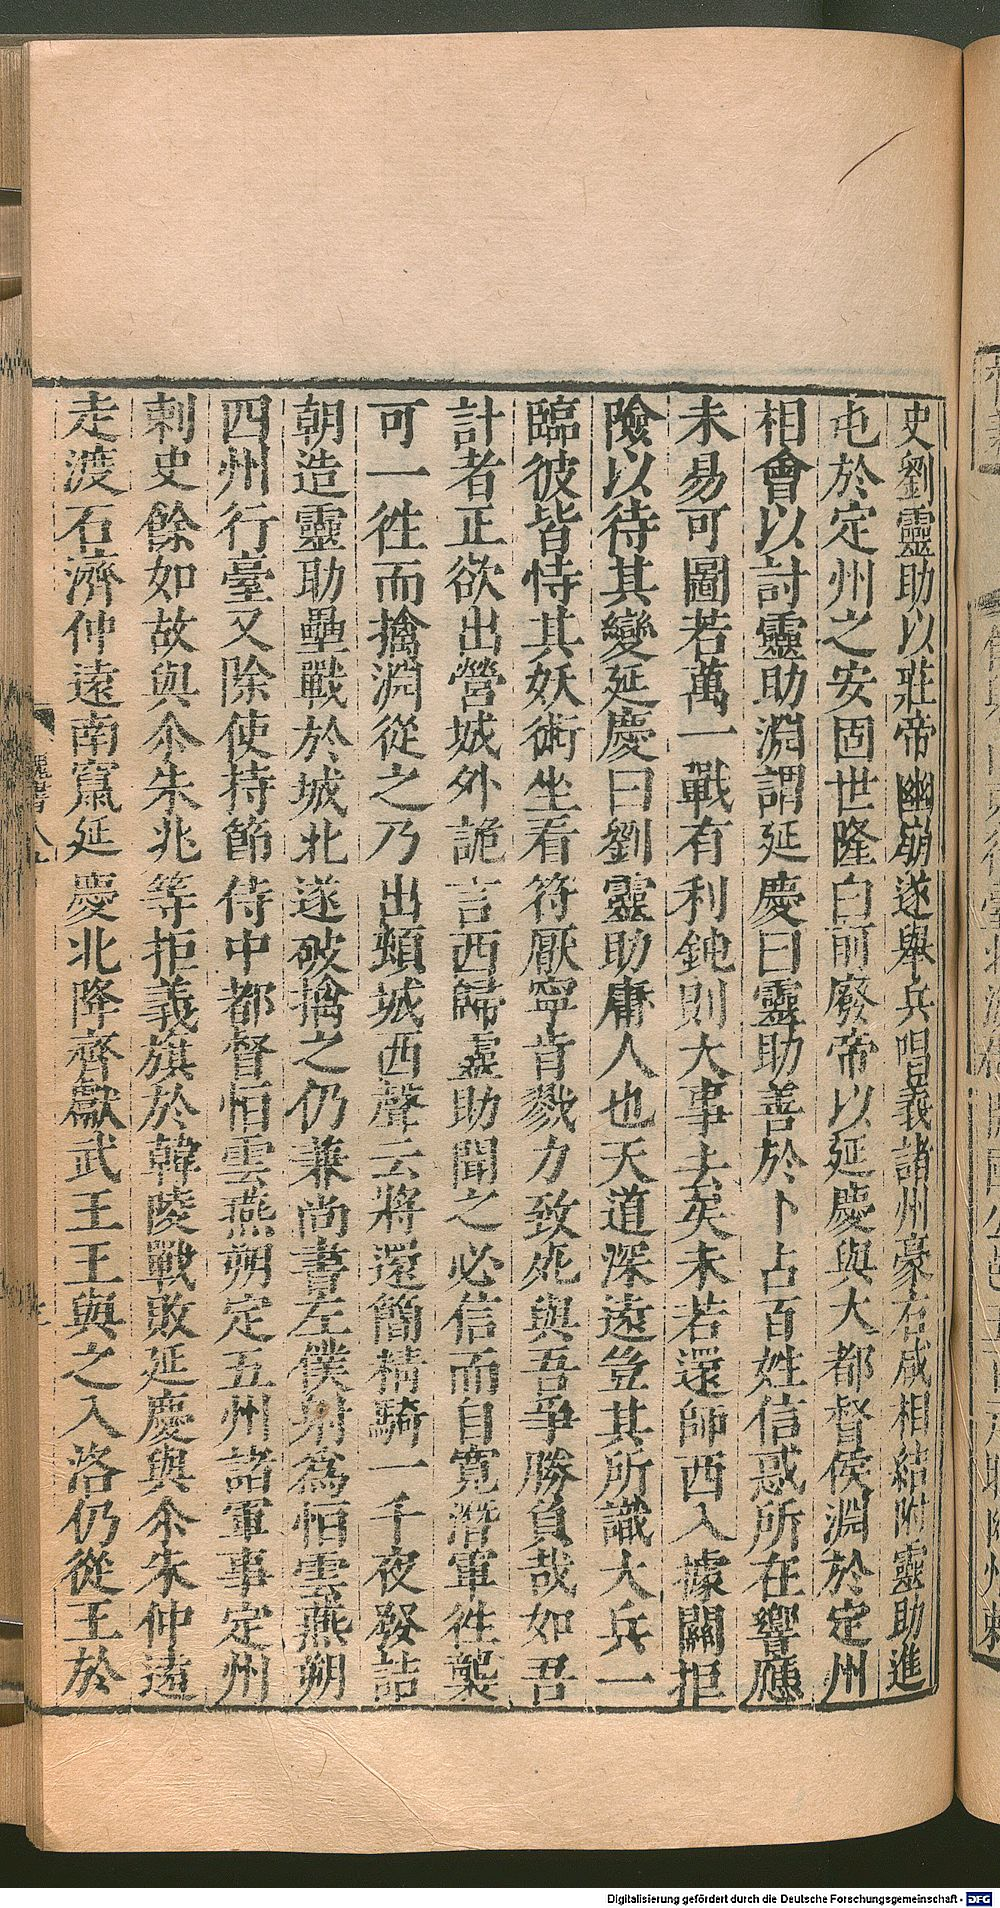 史劉靈助以莊帝幽崩遂舉兵唱義諸州豪右咸相結附靈助進
屯於定州之安固世隆白前廢帝以延慶與大都督侯淵於定州
相會以討靈助淵謂延慶曰靈助善於卜占百姓信惑所在響應
未易可圖若萬一戰有利鈍則大事去矣未若還師西入據關拒
險以待其變延慶曰劉靈助庸人也天道深遠豈其所識大兵一
臨彼皆恃其妖術坐看符厭寧肯戮力致死與吾爭勝負哉如吾
計者正欲出營城外詭言西歸靈助聞之必信而自寬潛軍徃襲
可一徃而擒淵從之乃出頓城西聲云將還簡精騎一千夜發詰
朝造靈助壘戰於城北遂破擒之仍兼尚書左僕射為恒雲燕朔
四州行臺又除使持節侍中都督恒雲燕朔定五州諸軍事定州
刺史餘如故與尒朱兆等拒義旗於韓陵戰敗延慶與尒朱仲遠
走渡石濟仲遠南竄延慶北降齊獻武王王與之入洛仍從王於
魏書八十
Digitalisierung gefördert durch die Deutsche Forschungsgemeinschaft - DFG